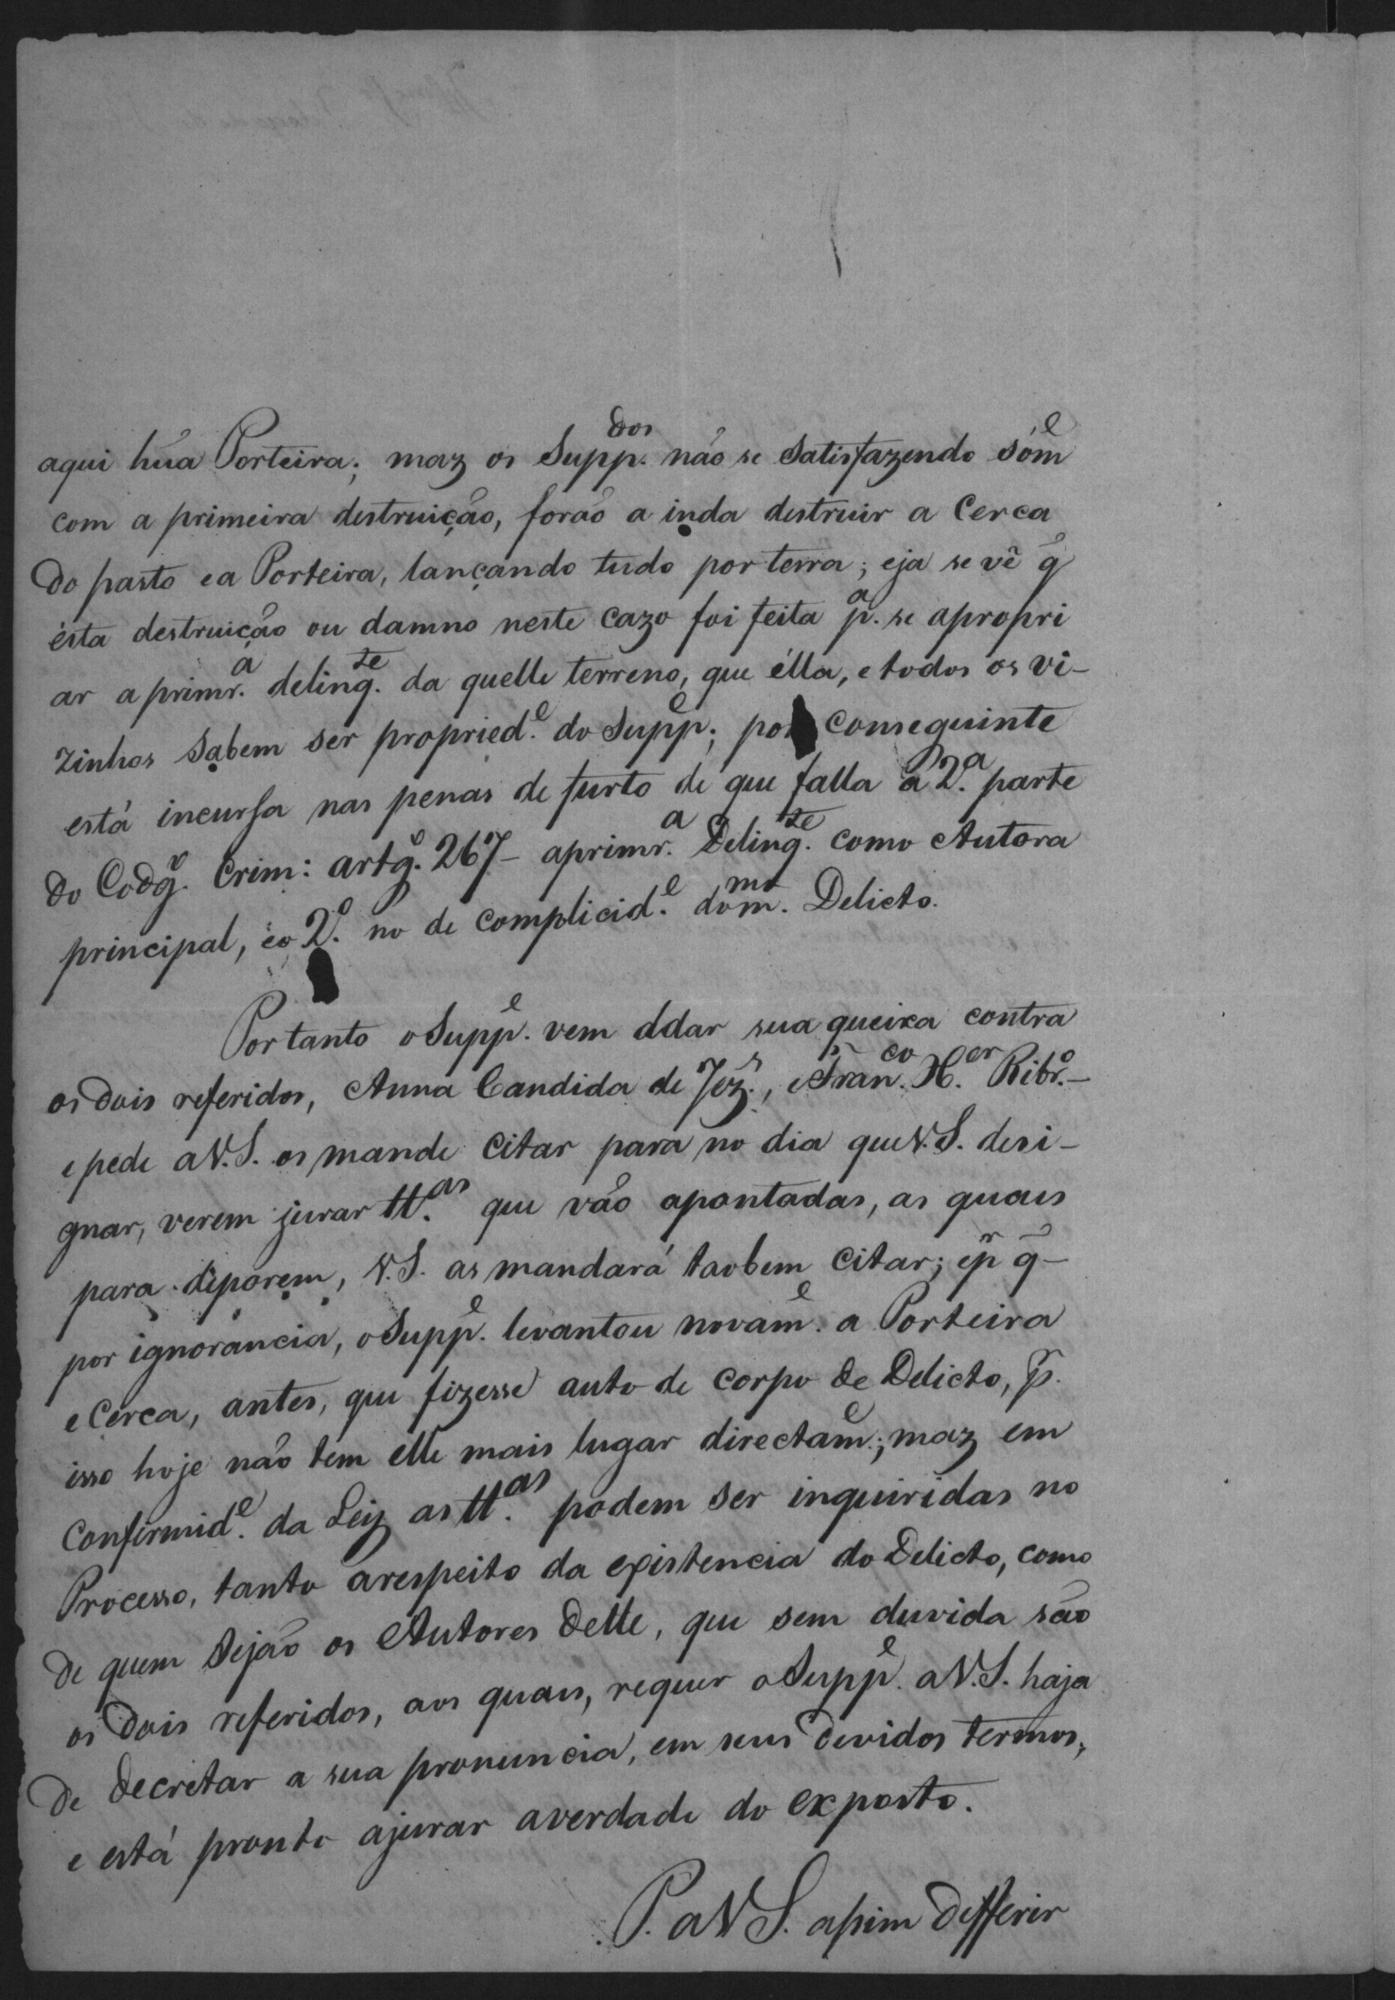 aqui hũa Porteira; maz os Supp.dos não se satisfazendo sóme
com a primeira destruição, forão a inda destruir a Cerca
do pasto e a Porteira, lançando tudo por terra; e ja se vê q̃
esta destruição ou damno neste cazo foi feita p.a se apropri
ar a primr.a delinq.te da quelle terreno, que élla, e todos os vi-
zinhos sabem ser propried.e do Suppe; por conseguinte
está incursa nas penas de furto de que falla a 2.a parte
do Codg.o Crim: artg.o 267 - a primr.a Delinq.te como Autora
principal, e o 2.o no de complicid.e do m.mo Delicto.
Portanto o Supp.e vem ddar sua queixa contra
os dois referidos, Anna Candida de Jez.s, e Fran.co H.er Ribr.o -
e pede a V.S. os mande citar para no dia que V.S. desi-
gnar, verem jurar tt.as que vão apontadas, as quais
para diporem, V.S. as mandará taobem citar; e pr q̃ -
por ignorancia, o Supp.e levantou novam.e a Porteira
e Cerca, antes, que fizesse auto de corpo de Delicto, p.r
isso hoje não tem elle mais lugar directam.e; maz em
confirmid.e da Leiz as tt.as podem ser inquiridas no
Processo, tanto a respeito da existencia do Delicto, como
de quem Sejão os Autores delle, que sem duvida são
os dois referidos, aos quais, requer o Supp.e a V.S. haja
de decretar a sua pronuncia, em seus devidos termos,
e está pronto a jurar a verdade do exposto.
P. a V S. assim defferir